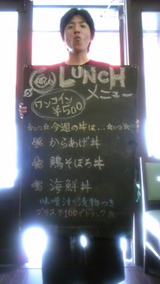 LUNCH
メニュー
ワンコイン
¥500
今週の丼は…
からあげ丼
鶏そぼろ丼
海鮮丼
味噌汁、漬物つき
プラス¥100でドリンク